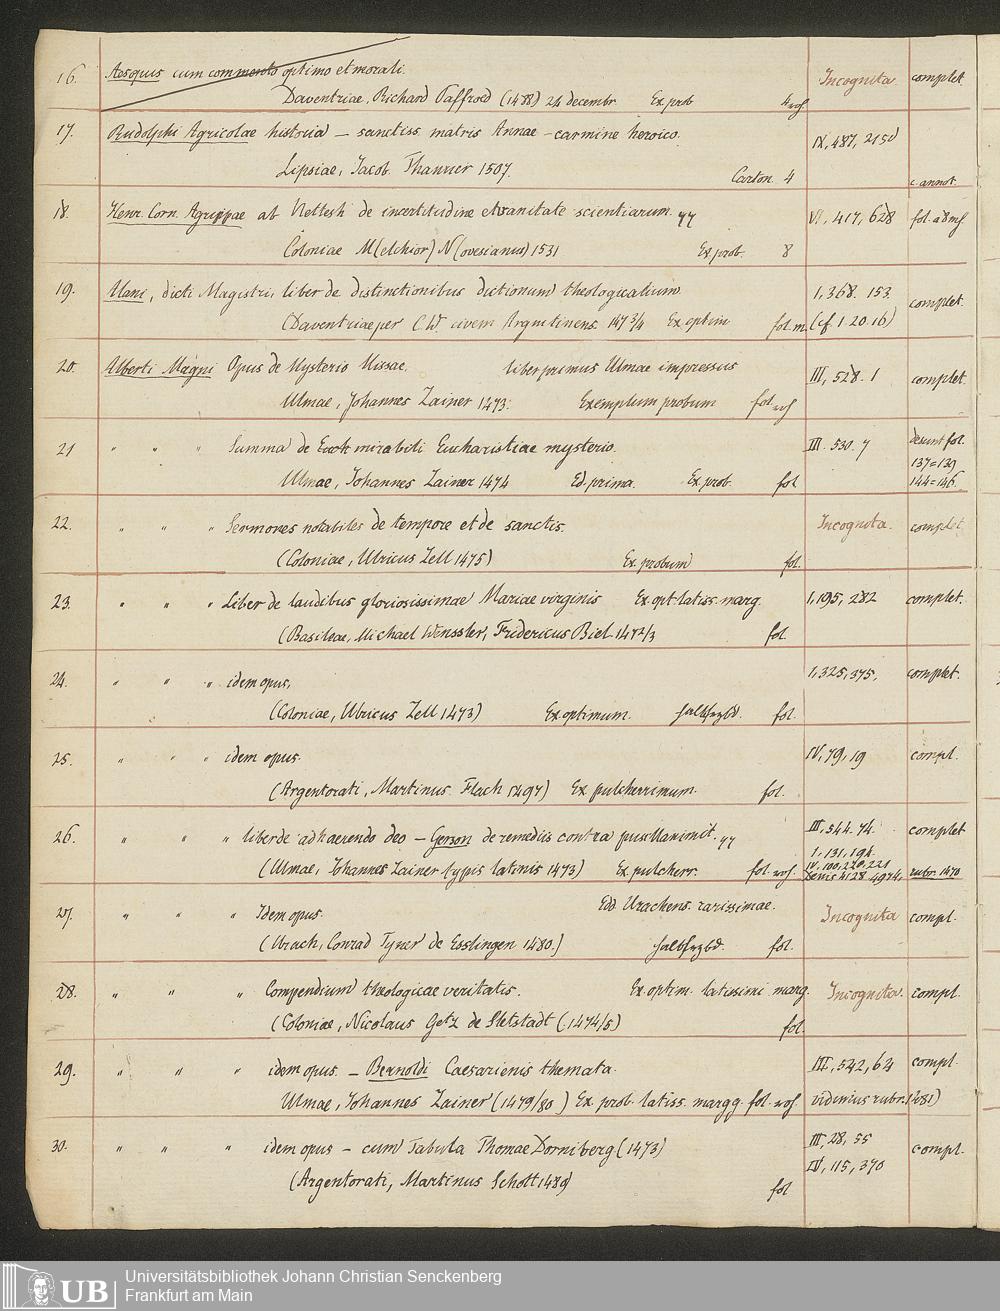 16. Aesopus cum commento optimo et morali. Incognita complet.
Daventriae, Richard Paffroed (1488) 24 decembr Ex prob 4
17. Rudolphi Agricolae historia – sanctiss. matris Annae – carmine heroico. IX, 487, 215d
Lipsiae, Jacob. Thanner 1507. Carton. 4 c. annot.
18. Henr. Corn. Agrippae ab Nettesh de incertitudine et vanitate scientiarum. VI, 417, 628
Coloniae M(elchior) N(ovesianus) 1531 Ex prob. 8
19. Alani, dicti Magistri, liber de distinctionibus dictionum theologicalium. 1, 368. 153. complet.
(Daventriae per C. W. civem Argentinens. 1473/4 Ex optim fol. m. (cf 1. 20. 16)
20. Alberti Magni Opus de Mysterio Missae. liber primus Ulmae impressus III, 528. 1 complet.
Ulmae, Johannes Zainer 1473. Exemplum probum fol.
21 " " " Summa de Euch mirabili Eucharistiae mysterio. III. 530. 7 desunt fol.
137=139
Ulmae, Johannes Zainer 1474 Ed. prima. Ex prob. fol. 144=146.
22. " " " Sermones notabiles de tempore et de sanctis. Incognita. complet.
(Coloniae, Ulricus Zell 1475) Ex probum fol.
23. " " " Liber de laudibus gloriosissimae Mariae virginis Ex opt. latiss. marg. 1, 195, 282 complet.
(Basileae, Michael Wenssler, Fridericus Biel 1472/3 fol
24. " " " idem opus. 1, 325, 375. complet.
(Coloniae, Ulricus Zell 1473) Ex optimum. Halbfrzbd. fol.
25. " " " idem opus. IV, 79, 19 compl.
(Argentorati, Martinus Flach 1497) Ex pulcherrimum. fol.
26. " " " liber de adhaerendo deo – Gerson de remediis contra pusillanimit. III, 544. 74. complet
1, 131, 194.
(Ulmae, Johannes Zainer typis latinis 1473) Ex pulcherr. fol. IV, 100, 220, 221
Denis 4128. 4974, rubr. 1470
27. " " " Idem opus. Edd Urachens. rarissimae. Incognita compl.
(Urach, Conrad Fyner de Esslingen 1480.) Halbfrzbd. fol.
28. " " " Compendium theologicae veritatis. Ex optim. latissimi marg. Incognita. compl.
(Coloniae, Nicolaus Getz de Sletstadt (1474/5) fol.
29. " " " idem opus – Bernoldi Caesariensis themata. III, 542, 64 compl.
Ulmae, Johannes Zainer (1479/80) Ex prob. latiss. margg. fol. vidimus rubr. 1481)
30. " " " idem opus – cum Tabula Thomae Dorniberg (1473) III, 28, 55 compl.
IV, 115, 370
(Argentorati, Martinus Schott 1489) fol
UB Universitätsbibliothek Johann Christian Senckenberg
Frankfurt am Main